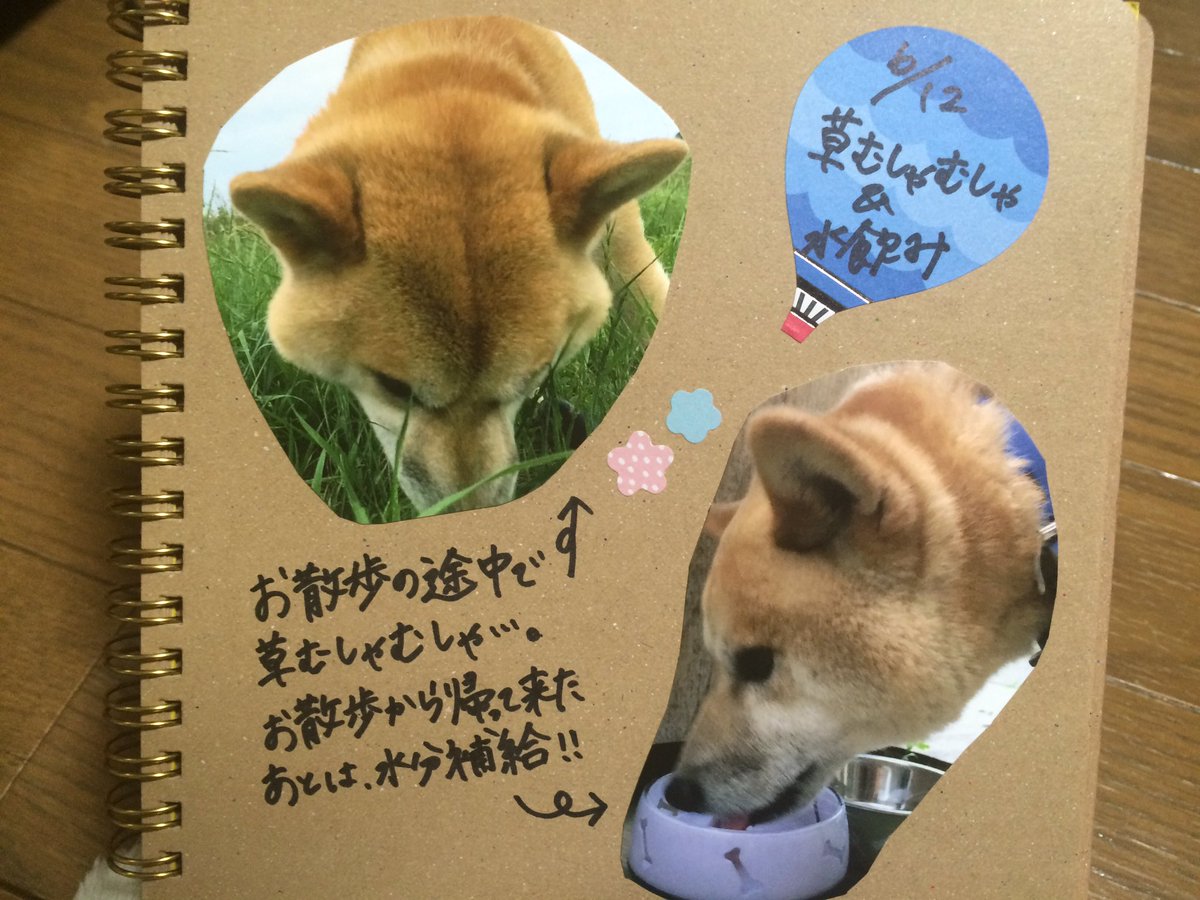 6/12
草むしゃむしゃ
&
水飲み
お散歩の途中で
草むしゃむしゃ…。
お散歩から帰って来た
あとは、水分補給!!